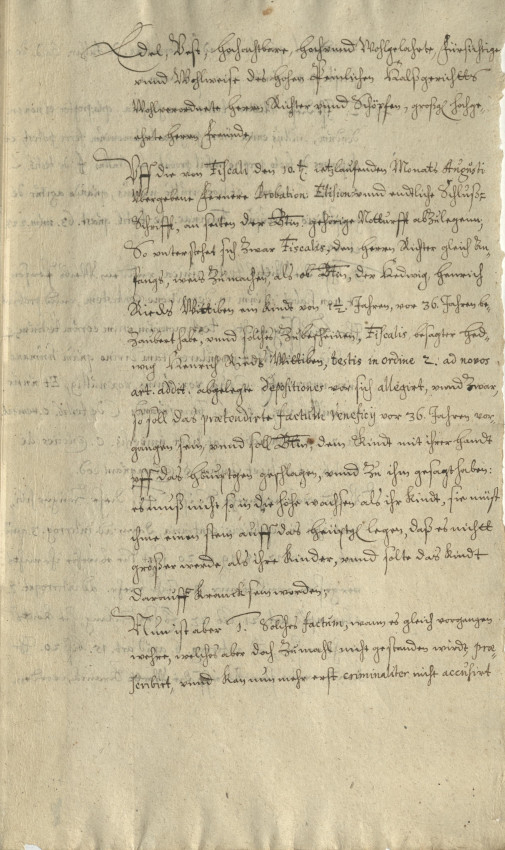 Edel, Vest, Hochachtbare, Hoch und Wohlgelahrte, Fürsichtige
vnnd Wohlweise des hohen Peinlichen Halßgerichtts
Wohlverordnete Herrn Richter vnnd Schöpfen, großg. Hochge-
ehrte Herrn Freunde,
Vff die von Fiscali den 10.t. ietzlauffenden Monats Augusti
Vbergebene fernere Probation Elision vnnd endliche Schluß-
Schrifft, an seiten der Btin gehörige Notturfft abZulegenn,
So vnterstehet sich Zwar Fiscalis, den Herrn Richter gleich An-
fangs, weis Zumachen, als ob Btin, der Hedwig, Henrich
Rieds Wittiben ein Kindt von Jahren, vor 36. Jahren be-
Zaubert habe, vnnd solches Zubescheinen, Fiscalis besagter Hed-
wig Henrich Rieds Wittiben, testis in ordine 2. ad novos
art. addit. abgelegte depositiones vor sich allegirt, vnnd Zwar,
so soll das praetendirte factum veneficij vor 36. Jahren vor-
gangen sein, vnnd soll Btin dem Kindt mit ihrer handt
vff das häuptgen geschlagen, vnnd Zu ihm gesagt haben:
es muß nicht so in die höhe wachsen als ihr Kindt, sie müst
ihme einen stein auff das heüptgen legen, daß es nichtt
größer werde, als ihre Kinder, vnnd solte das Kindt
darauff Kranck sein worden,
Nun ist aber 1. Solches factum, wann es gleich vorgangen
wehre, welches aber doch Zumahl nicht gestanden würdt, prae-
scribirt, vnnd Kan nun mehr erst criminaliter nicht accusirt